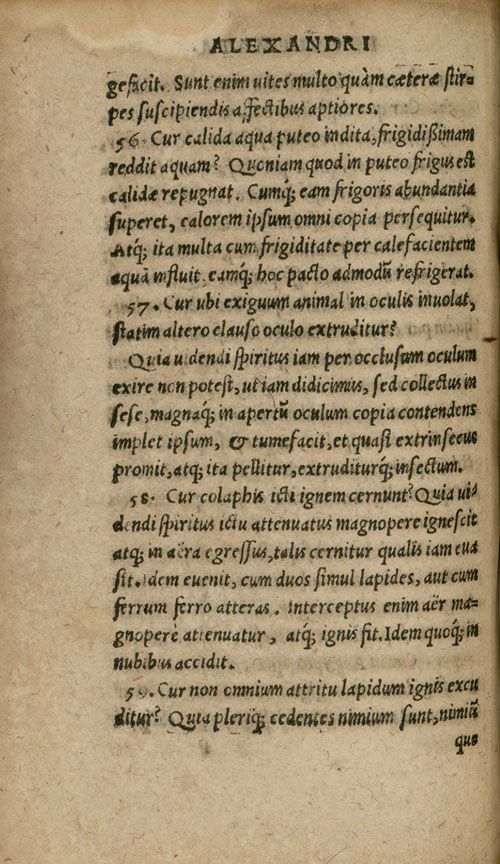 ALEXANDRI
gefacit. Sunt enim uites multo quàm cæteræ stir=
pes suscipiendis affectibus aptiores.
56. Cur calida aqua puteo indita, frigidißimam
reddit aquam? Quoniam quod in puteo frigus est
calidæ repugnat. Cumq́; eam frigoris abundantia
superet, calorem ipsum omni copia persequitur.
Atq́; ita multa cum frigiditate per calefacientem
aquã influit. eamq́; hoc pacto admodũ refrigerat.
57. Cur ubi exiguum animal in oculis inuolat,
statim altero clauso oculo extruditur?
Quia uidendi spiritus iam per occlusum oculum
exire non potest, ut iam didicimus, sed collectus in
sese, magnaq́; in apertũ oculum copia contendens
implet ipsum, & tumefacit, et quasi extrinsecus
promit, atq́; ita pellitur, extruditurq́; insectum.
58. Cur colaphis icti ignem cernunt? Quia ui=
dendi spiritus ictu attenuatus magnopere ignescit
atq́; in aëra egressus, talis cernitur qualis iam eua
sit. Idem euenit, cum duos simul lapides, aut cum
ferrum ferro atteras. Interceptus enim aër ma=
gnopere attenuatur, atq́; ignis fit. Idem quoq́; in
nubibus accidit.
59. Cur non omnium attritu lapidum ignis excu
ditur? Quia pleriq́; cedentes nimium sunt, nimiũ
que